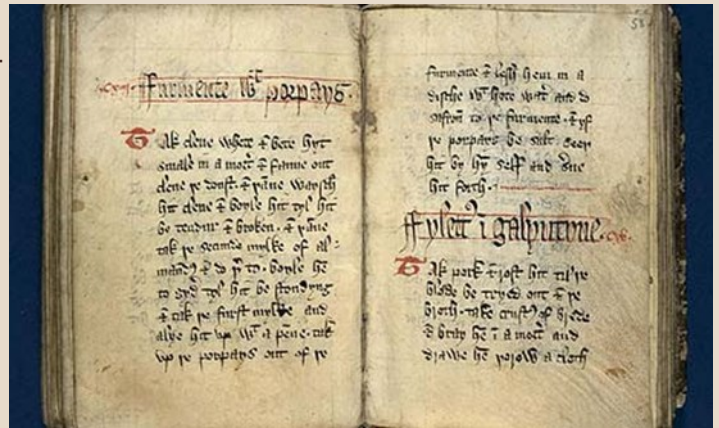 furmente wt porpays.
Tak clene whete & bete hyt
smale in a morter & fanne out
clene þe doust. & þane waysch
hit clene & boyle hit tyl hit
be tendur & broken. & þane
tak þe secunde mylke of al-
mandys & do þerto. boyle hem
to gyd tyl hit be stondyng
& take þe furst mylke and
alye hit up wt a penne. tak
up þe porpays out of þe
53
furmente & lesh hem in a
dische wt hote water and do
safron to þe furmente. & yf
þe porpays be salt. seeþ
hit by hym self and serue
hit forth.
Fylettes i galyntyne.
Tak pork & rost hit til þe
blode be tryed out & þe
broth. take crustes of brede
& bray hem i a morter and
drawe hem þorow a cloth